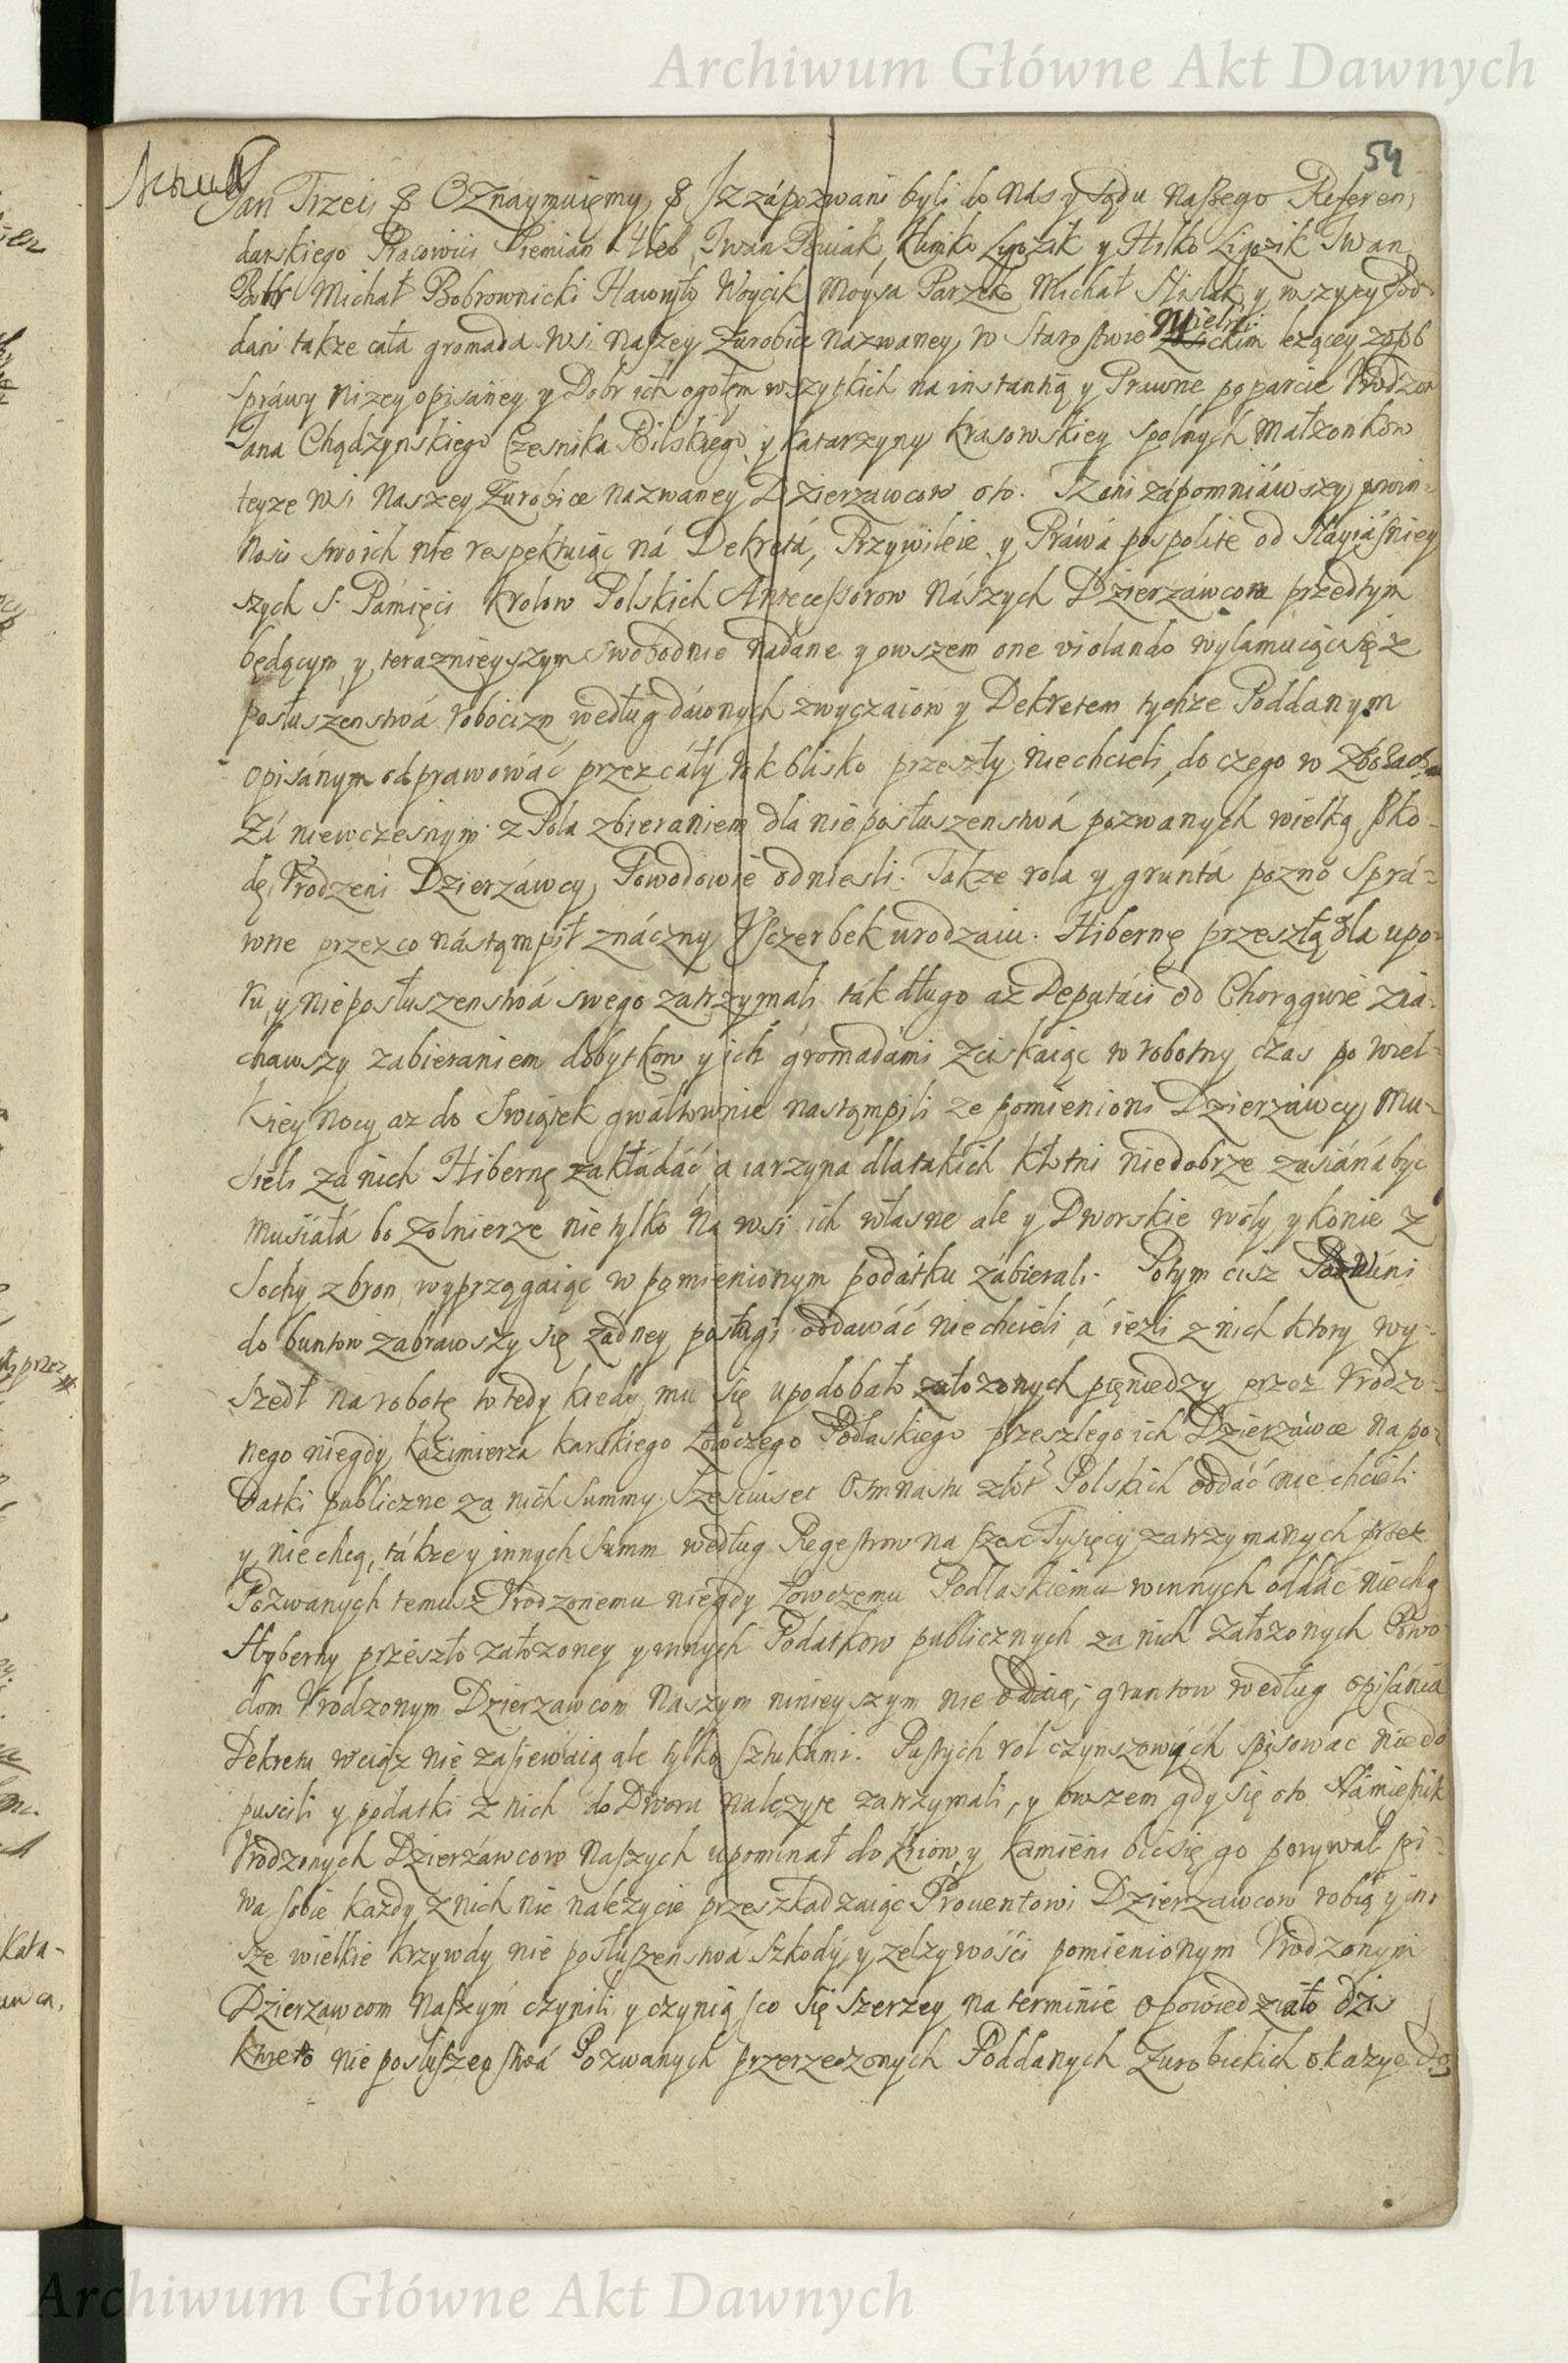 Archiwum Główne Akt Dawnych
54
Jan Trzeci & Oznaymuięmy & Jz zápozwani byli do Nas y Sądu Naszego Referen,
darskiego Pracowici Siemian Hleb, Iwan Pawiak, Klimko Ligozik y Hilko Ligozik Iwan
Bobr Michał Bobrownicki Hawryło Woycik Moysa Parzek Michał y wszyscy Pod-
dani takze cała gromada wsi Naszey Zurobice nazwaney, w Starostwie Mielni ckim lezącey zosob
Spráwy nizey opisáney y Dobr ich ogołem wszystkich na instantią y Prawne poparcie Vrodzon
Jana Chądzynskiego Czesnika Bilskiego, y Katarzyny Krasowskiey Spolnych Małzonkow
teyze Wsi Naszey Zurobice nazwaney Dzierzawcow oto. Iz oni zápomniáwszy powin-
nosci swoich nie respektuiąc ná Dekretá, Przywileie y Práwá pospolite od Nayiásniey
szych S. Pámięci Krolow Polskich Antecessorow Nászych Dzierzáwcom przedtym
będącym, y teraznieyszym swobodnie nadane y owszem one violando wylamuiąc się z
posłuszenstwá robocizn według dáwnych zwyczaiow y Dekretem tychze Poddanym
opisánym odprawowáć przez cáły rok blisko przeszły niechcieli, do czego w
Zi niewczesnym z Pola zbieraniem dla nieposłuszenstwá pozwanych wielką szko-
dę Vrodzeni Dzierzáwcy Powodowie odniesli. Takze rola y grunta pozno Sprá-
wne przez co nástąmpił znáczny Vsczerbek urodzaiu. Hibernę przeszłą dla upo-
ru, y nieposłuszenstwá swego zatrzymali ták długo az Deputáci od Chorągwie zia-
chawszy zabieraniem dobytkow y ich gromadami zciskaiąc w robotny czas po Wiel-
kiey Nocy az do Swiątek gwałtownie nastąmpili ze pomienioni Dzierzáwcy Mu-
sieli za nich Hibernę zakłádáć, a iarzyna dla takich kłotni niedobrze zasianá byc
musiáłá bo Zolnierze nie tylko ná wsi ich własne ale y Dworskie woły y konie z
Sochy z bron wyprzągaiąc w pomienionym podátku zábierali. Potym cisz Pozwáni
do buntow zabrawszy się zádney posługi oddawáć niechcieli á iezli z nich ktory wy-
szedł na robotę to tedy kiedy mu się upodobało załozonych pięniedzy przez Vrodzo-
nego niegdy Kazimierza Karskiego Łowczego Podlaskiego przeszłego ich Dzierzáwce na po-
datki publiczne za nich Summy Szesciuset Osmnastu złot Polskich oddáć nie chcieli
y nie chcą, tákze y innych Summ według Regestrow na szesc Tysięcy zatrzymanych przez
Pozwanych temusz Vrodzonemu niegdy Łowczemu Podlaskiemu winnych oddác niechcą
Hyberny przeszło załozoney y innych Podatkow publicznych za nich załozonych Powo
dom Vrodzonym Dzierzawcom Naszym ninieyszym nie oddaią, gruntow według opisánia
Dekretu wciąz nie zasiewáią ale tylko sztukami. Pustych rol czynszowych spisowac niedo
puscili y podatki z nich do Dworu nalezyte zatrzymali, y owszem gdy się oto Námiesnik
Vrodzonych Dzierzáwcow Naszych upominał do kiiow y kamieni bic się go porywali pi-
wa sobie kazdy z nich nie nalezycie przeszkadzaiąc Prouentowi Dzierzawcow robią y in-
sze wielkie krzywdy nie posłuszenstwá szkody y zelzywości pomienionym Vrodzonym
Dzierzawcom Naszym czynili y czynią, co się szerzey na terminie opowiedziało dzis
nieposłuszenstwá Pozwanych przerzeczonych Poddanych Zurobickich okazyę do
Archiwum Główne Akt Dawnych